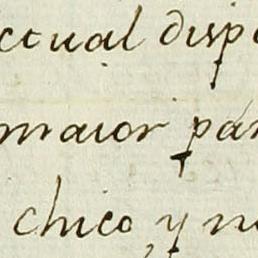 ctual disp
maior par
chico y n